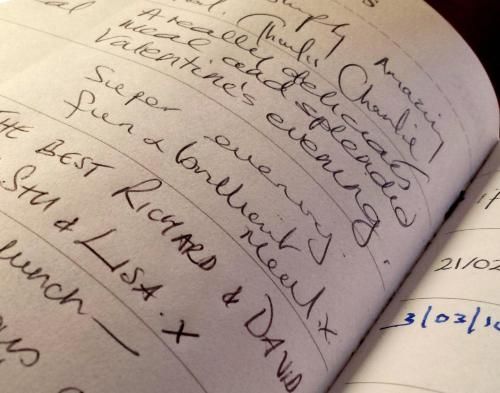 Simply Amazing
Thanks Charlie
A really delicious
meal and splendid
Valentine's evening.
Super evening.
fun & brilliant
Meal x
THE BEST RICHARD & DAVID
STU & LISA. x
lunch —
21/02
3/03/